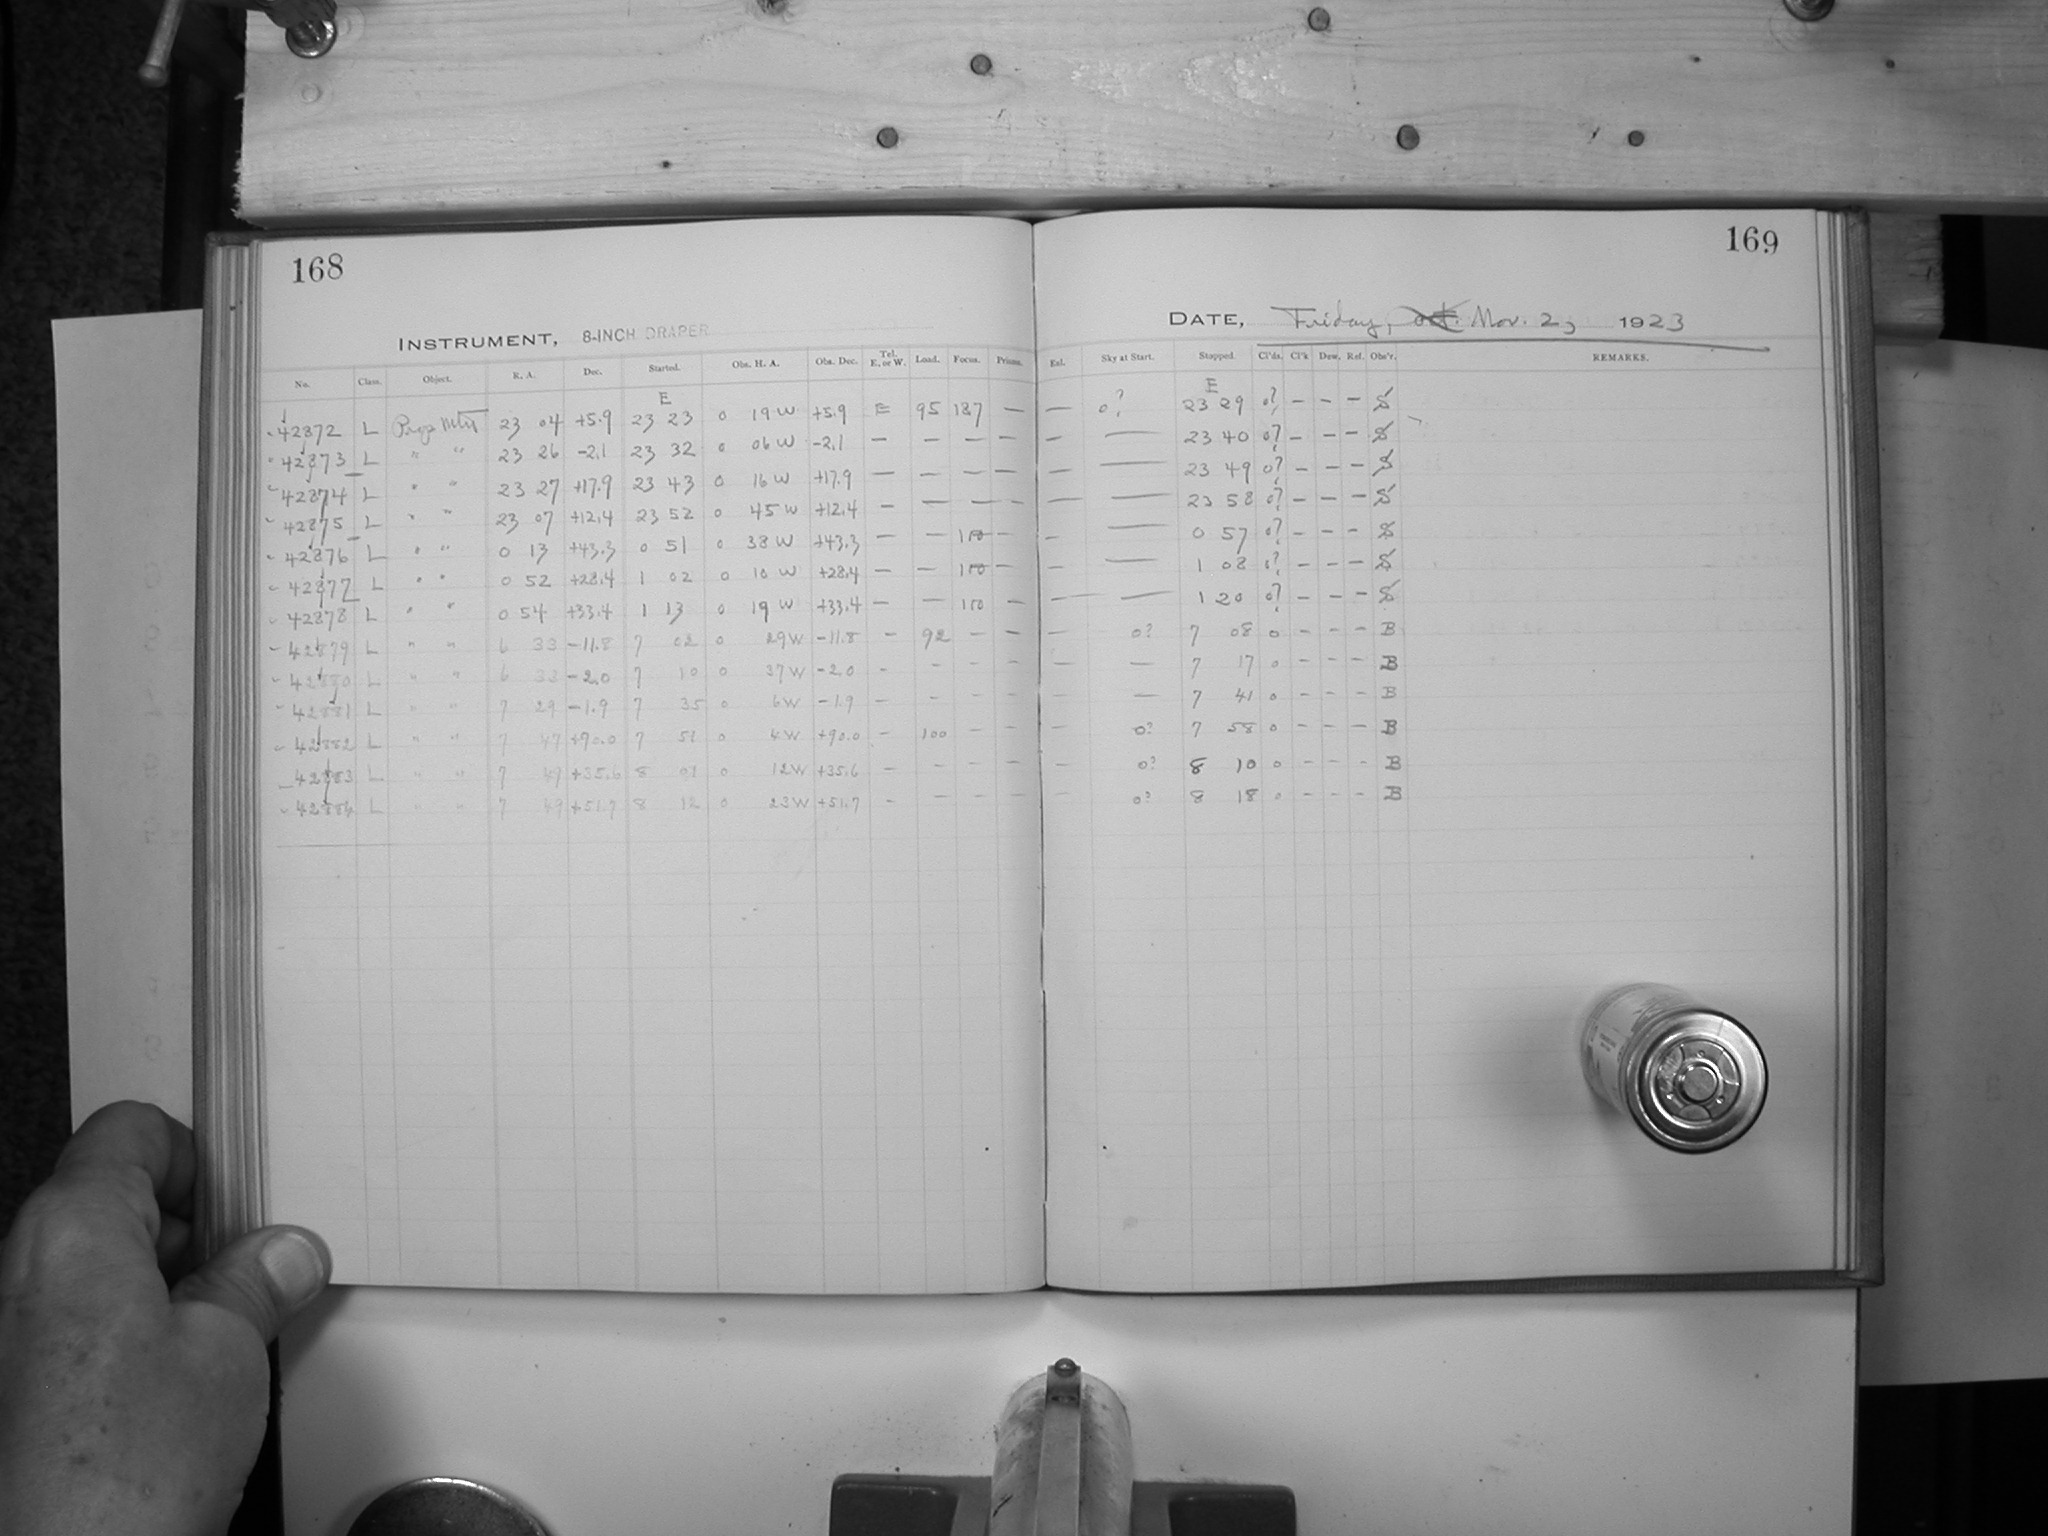 168
INSTRUMENT, 8-INCH DRAPER
No. Class. Object. R. A. Dec. Started. Obs. H. A. Obs. Dec. Tel. E. or W. Load. Focus. Prisms.
E
42872 L Prop Mtn 23 04 +5.9 23 23 0 19 W +5.9 E 95 187 —
42873 L " " 23 26 -2.1 23 32 0 06 W -2.1 — — — —
42874 L " " 23 27 +17.9 23 43 0 16 W +17.9 — — — —
42875 L " " 23 07 +12.4 23 52 0 45 W +12.4 — — — —
42876 L " " 0 13 +43.3 0 51 0 38 W +43.3 — — —
42877 L " " 0 52 +28.4 1 02 0 10 W +28.4 — — —
42878 L " " 0 54 +33.4 1 13 0 19 W +33.4 — — —
42879 L " " 6 33 -11.8 7 02 0 29 W -11.8 - 92 - -
42880 L " " 6 33 -2.0 7 10 0 37 W -2.0 - - - -
42881 L " " 7 29 -1.9 7 35 0 6 W -1.9 - - - -
42882 L " " 7 47 +90.0 7 51 0 4 W +90.0 - 100 - -
42883 L " " 7 49 +35.6 8 01 0 12 W +35.6 - - - -
42884 L " " 7 49 +51.7 8 12 0 23 W +51.7 - - - -
169
DATE, Friday, Oct. Nov. 2, 1923
Exl. Sky at Start. Stopped. Cl'ds. Cl'k Dew. Ref. Obs'r. REMARKS.
E
— 0? 23 29 0? — — — S
— — 23 40 0? — — — S
— — 23 49 0? — — — S
— — 23 58 0? — — — S
— — 0 57 0? — — — S
— — 1 08 0? — — — S
— — 1 20 0? — — — S
— 0? 7 08 0 - - - B
— — 7 17 0 - - - B
— — 7 41 0 - - - B
— 0? 7 58 0 - - - B
— 0? 8 10 0 - - - B
— 0? 8 18 0 - - - B